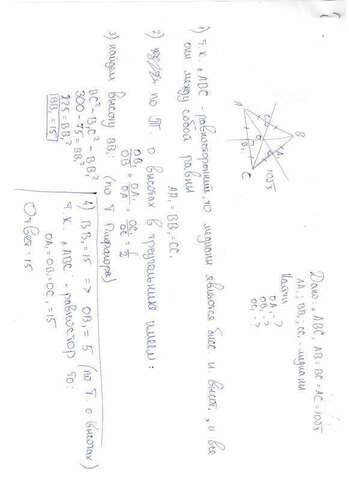 Дано: △ABC, AB=BC=AC=10√3
AA₁; BB₁, CC₁ - медианы
Найти
OA₁ - ?
OB₁ - ?
OC₁ - ?
A
B
C
C₁
A₁
B₁
O
10√3
1) т.к. △ABC - равносторонний, то медианы являются бисс и высот, и все
они между собой равны
AA₁ = BB₁ = CC₁
2) по т. о высотах в треугольнике имеем:
OB₁/OB = OA₁/OA = OC₁/OC = 1/2
3) найдем высоту BB₁ (по т Пифагора)
BC² - B₁C² = BB₁²
300 - 75 = BB₁²
225 = BB₁²
BB₁ = 15
4) BB₁ = 15 => OB₁ = 5 (по т. о высотах)
т.к. △ABC - равностор, то:
OA₁ = OB₁ = OC₁ = 15
Ответ: 15